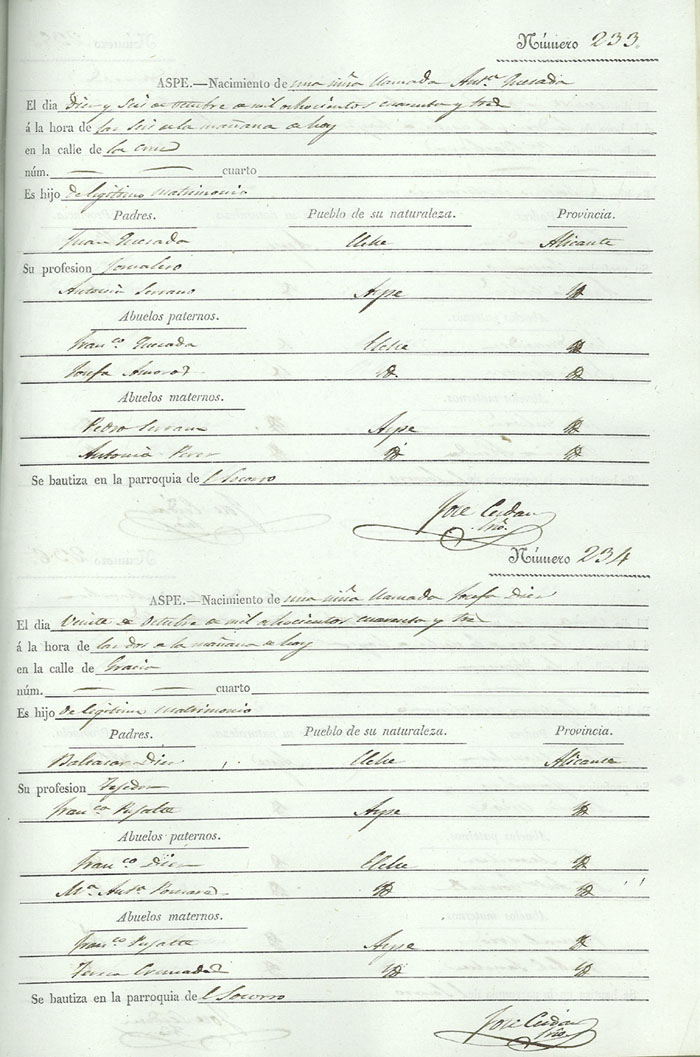 Número 233.
ASPE.—Nacimiento de una niña llamada Antª Quesada
El dia Diez y Seis de octubre de mil ochocientos cuarenta y tres
á la hora de las seis de la mañana de hoy
en la calle de la Cruz
núm. — — cuarto
Es hijo de legitimo matrimonio
Padres. Pueblo de su naturaleza. Provincia.
Juan Quesada Elche Alicante
Su profesion Jornalero
Antonia Serrano Aspe Yd
Abuelos paternos.
Franco Quesada Elche Yd
Josefa Amoros Yd. Yd
Abuelos maternos.
Pedro Serrano Aspe Yd
Antonia Perez Yd Yd
Se bautiza en la parroquia del Socorro
Jose Cerdan
Número 234
ASPE.—Nacimiento de una niña llamada Josefa Diez
El dia Veinte de Octubre de mil ochocientos cuarenta y tres
á la hora de las dos de la mañana de hoy
en la calle de Gracia
núm. — — cuarto
Es hijo de legitimo matrimonio
Padres. Pueblo de su naturaleza. Provincia.
Baltasar Diez Elche Alicante
Su profesion Tejedor
Franca Pujalte Aspe Yd
Abuelos paternos.
Franco Diez Elche Yd
Mª Antª Yd Yd
Abuelos maternos.
Franco Pujalte Aspe Yd
Teresa Cremades Yd Yd
Se bautiza en la parroquia del Socorro
Jose Cerdan